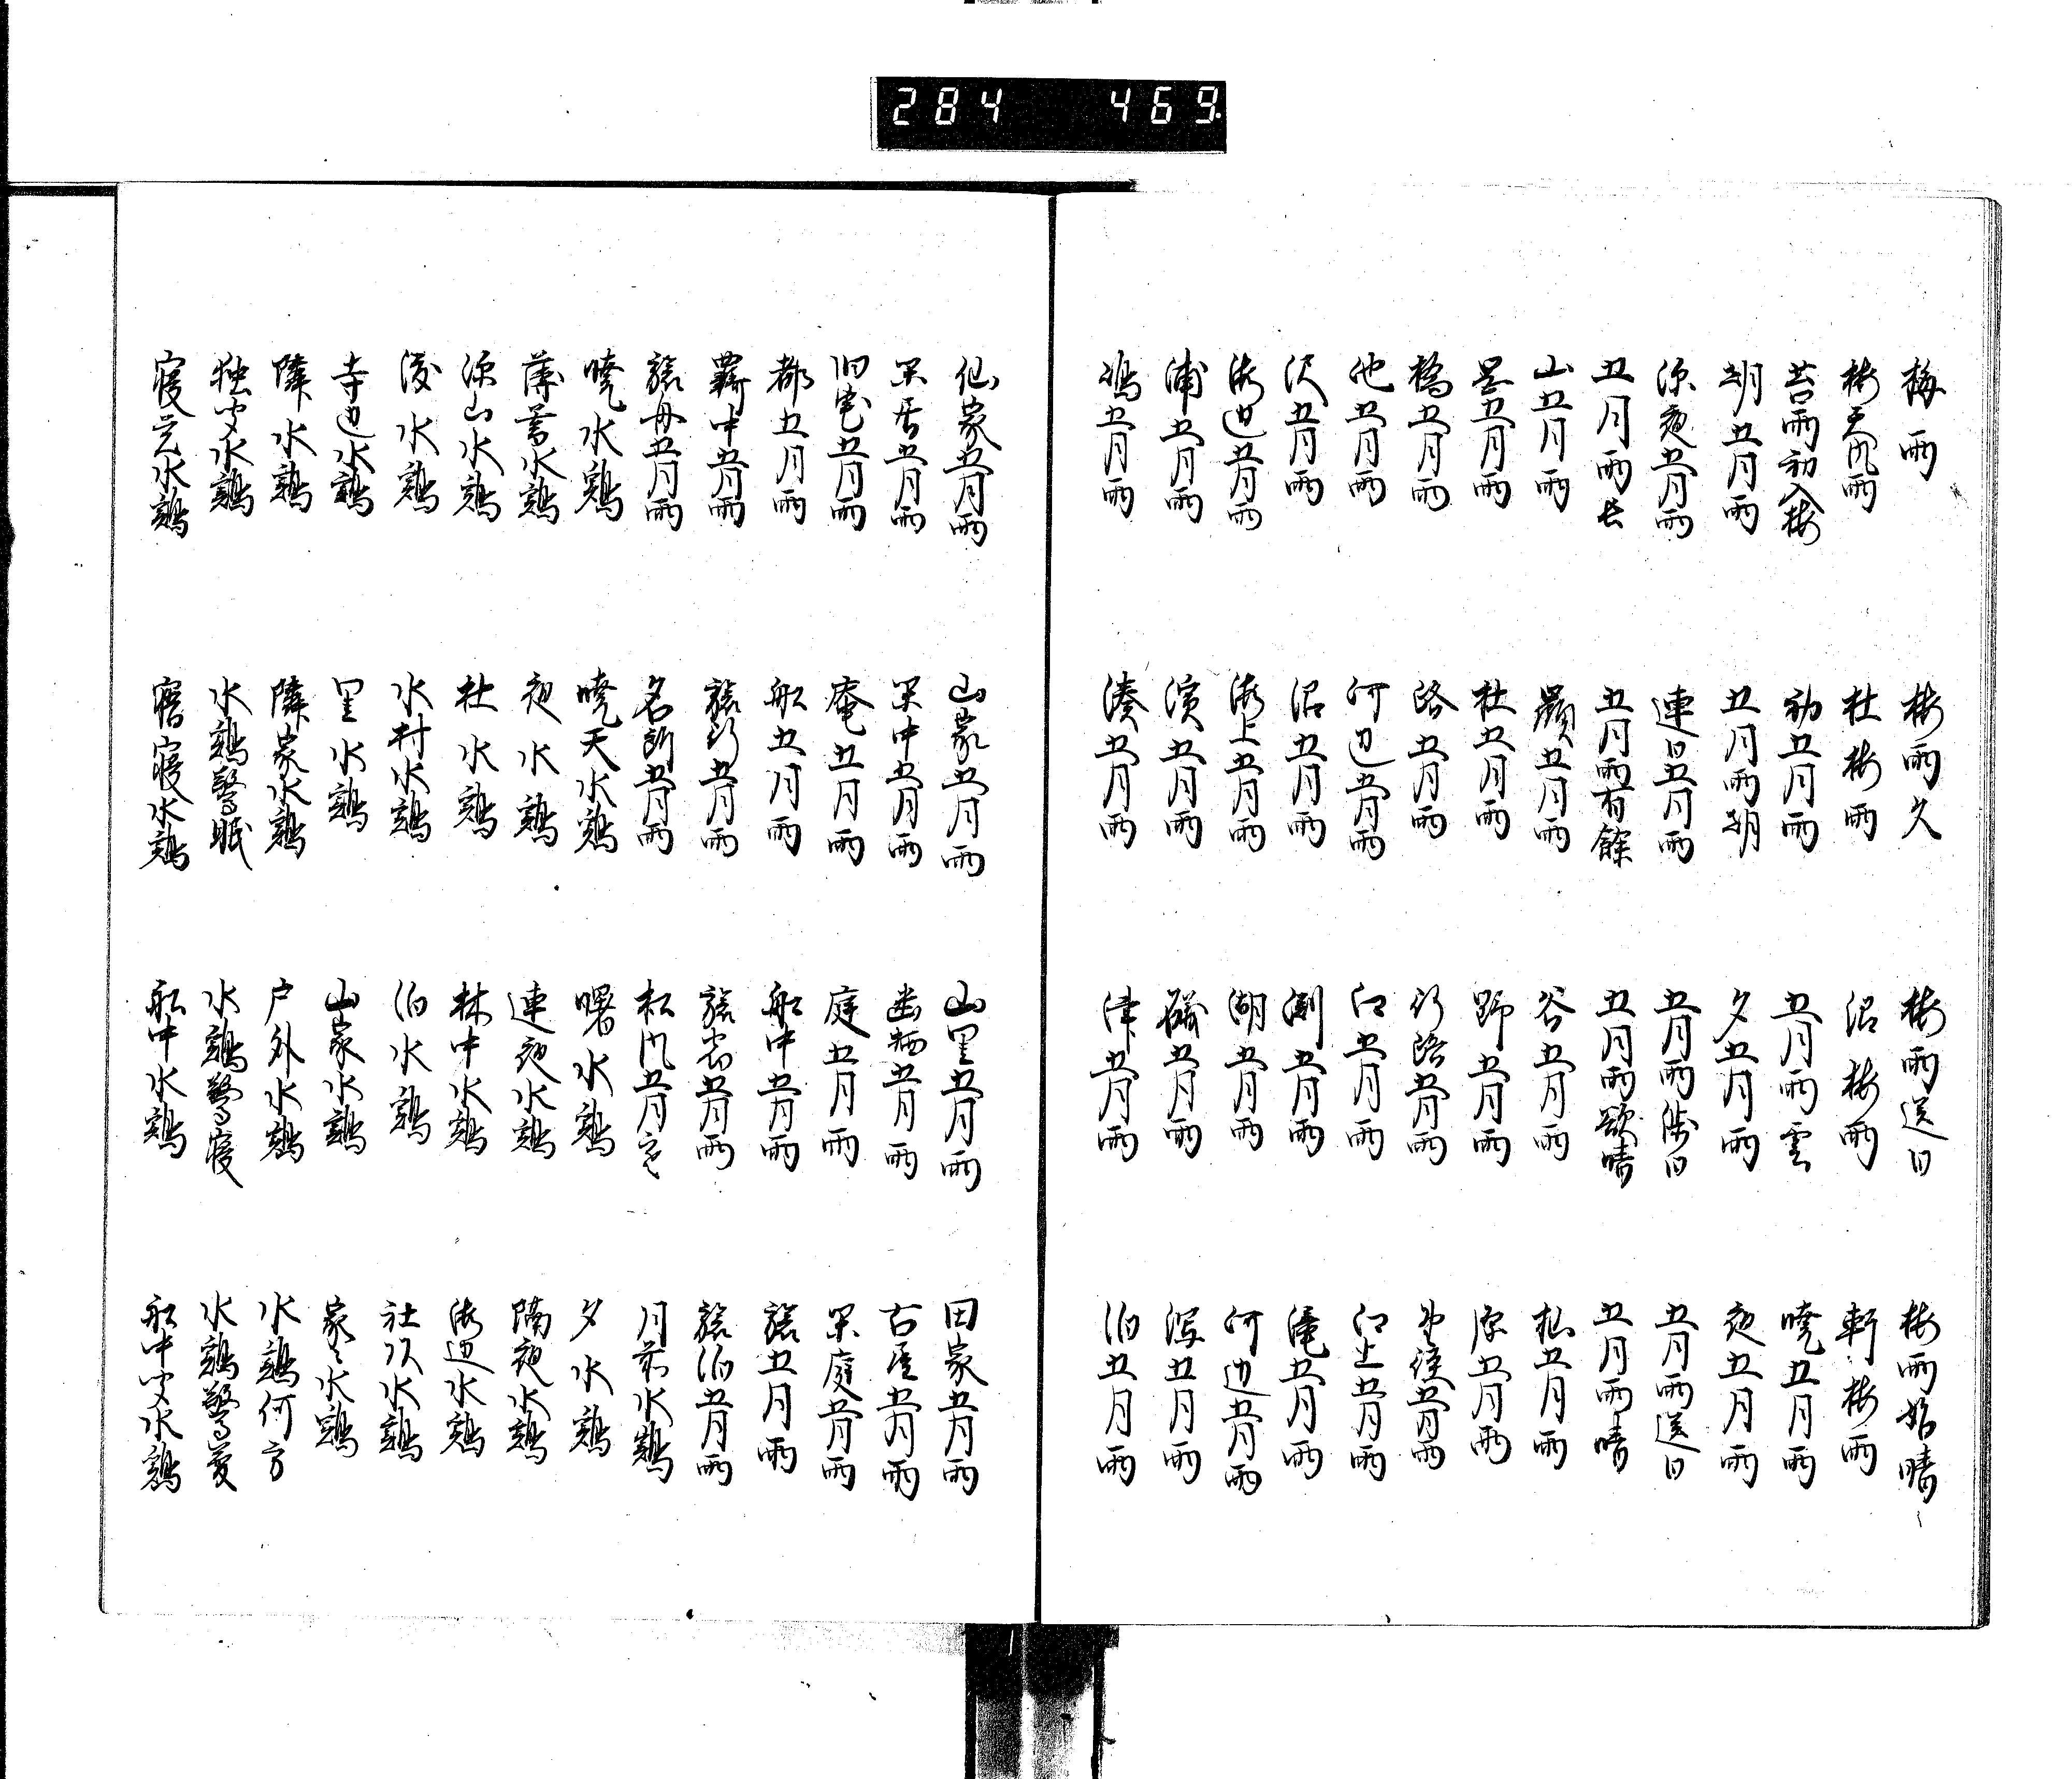 284 469
梅雨 梅雨久 梅雨送日 梅雨始晴
梅天風雨 杜梅雨 沼梅雨 軒梅雨
苔雨初入梅 初五月雨 五月雨雲 暁五月雨
朝五月雨 五月雨朝 夕五月雨 夜五月雨
深夜五月雨 連日五月雨 五月雨渉日 五月雨送日
五月雨長 五月雨有餘 五月雨欲晴 五月雨晴
山五月雨 嶺五月雨 谷五月雨 杣五月雨
罡五月雨 杜五月雨 野五月雨 原五月雨
橋五月雨 路五月雨 行路五月雨 五月雨
池五月雨 河辺五月雨 江五月雨 江上五月雨
沢五月雨 沼五月雨 渕五月雨 滝五月雨
海辺五月雨 海上五月雨 湖五月雨 河辺五月雨
浦五月雨 濱五月雨 礒五月雨 潟五月雨
嶋五月雨 湊五月雨 津五月雨 泊五月雨
仙家五月雨 山家五月雨 山里五月雨 田家五月雨
閑居五月雨 閑中五月雨 幽栖五月雨 古屋五月雨
旧宅五月雨 庵五月雨 庭五月雨 閑庭五月雨
都五月雨 舩五月雨 舩中五月雨 旅五月雨
羇中五月雨 旅行五月雨 旅宿五月雨 旅泊五月雨
旅舟五月雨 名所五月雨 松風五月寒 月前水鶏
暁水鶏 暁天水鶏 曙水鶏 夕水鶏
薄暮水鶏 夜水鶏 連夜水鶏 隔夜水鶏
深山水鶏 杜水鶏 林中水鶏 海辺水鶏
渡水鶏 水村水鶏 泊水鶏 社頭水鶏
寺辺水鶏 里水鶏 山家水鶏 家々水鶏
隣水鶏 隣家水鶏 戸外水鶏 水鶏何方
独聞水鶏 水鶏驚眠 水鶏驚寝 水鶏驚夢
寝覚水鶏 寤寝水鶏 舩中水鶏 舩中聞水鶏